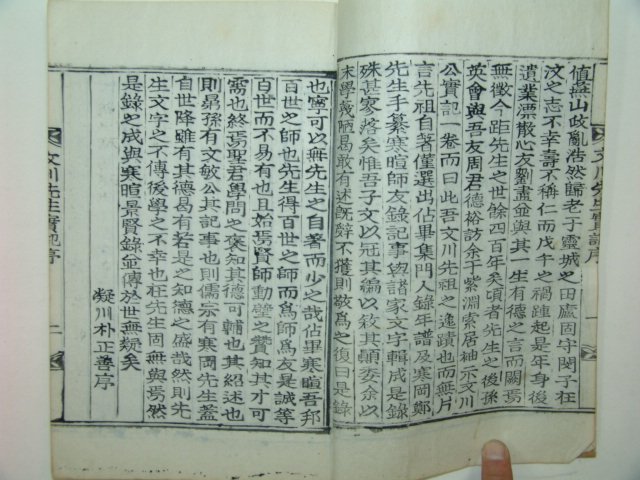 値燕山政亂浩然歸老于靈城之田廬固守閔子在
汶之志不幸壽不稱仁而戊午之禍踵起是年身後
遺業漂散心友劉盡並與其一生有德之言而闕焉
無徵今距先生之世餘四百年矣頃者先生之後孫
英會與吾友周君德裕訪余于紫淵索居袖示文川
公實記一卷而曰此吾文川先祖之遺蹟也而無片
言先祖自著僅選出佔畢集門人錄年譜及寒岡鄭
先生手纂寒暄師友錄記事與諸家文字輯成是錄
殊甚寂落矣惟吾子文以冠其編以敍其顚委余以
末學蔑陋曷敢有述旣辭不獲則敬爲之復曰是錄
也寧可以無先生之自著而少之哉佔畢寒暄吾邦
百世之師也先生得百世之師而爲師爲友是誠等
百世而不易有也且始焉賢師動壁之贊知其才可
需也終焉聖君學問之褒知其德可輔也其紹述也
則曷孫有文敏公其記事也則儒宗有寒岡先生蓋
自世降雖有其德曷有若是之知德之盛哉然則先
生文字之不傳後學之不幸也在先生固無與焉然
是錄之成與寒暄景賢錄並傳於世無疑矣
凝川朴正善序
文川先生實記序
二
文川先生實記序
一